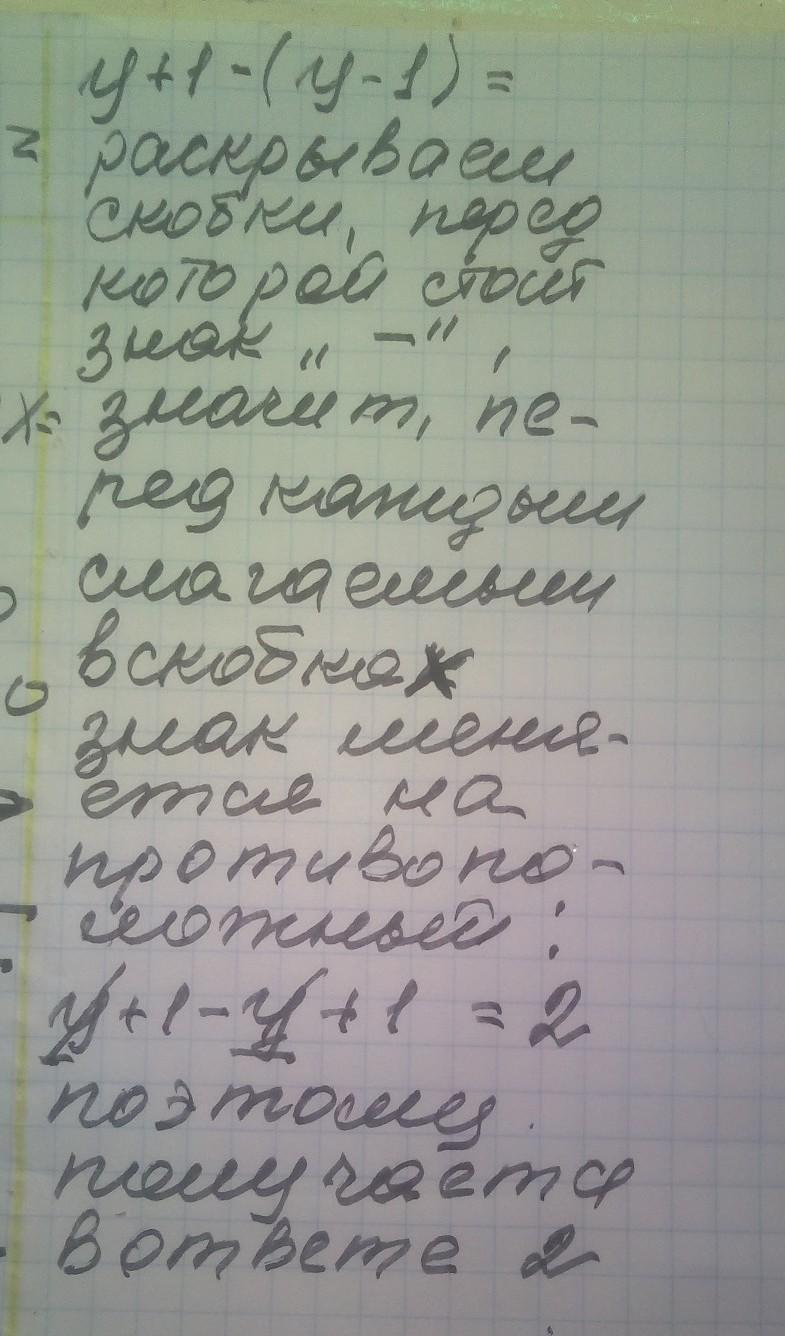 y+1-(y-1)=
раскрываем
скобки, перед
которой стоит
знак „-",
значит, пе-
ред каждым
слагаемым
в скобках
знак меня-
ется на
противопо-
ложный:
y+1-y+1=2
поэтому
получается
в ответе 2